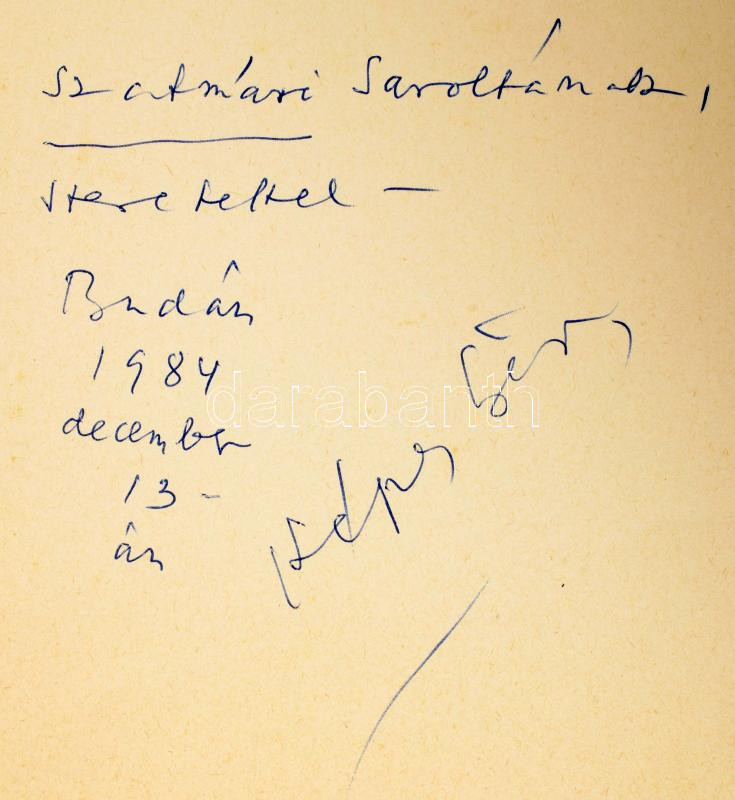 Szatmári Saroltának,
szeretettel —
Budán
1984
december
13-
án
Szépes
darabanth